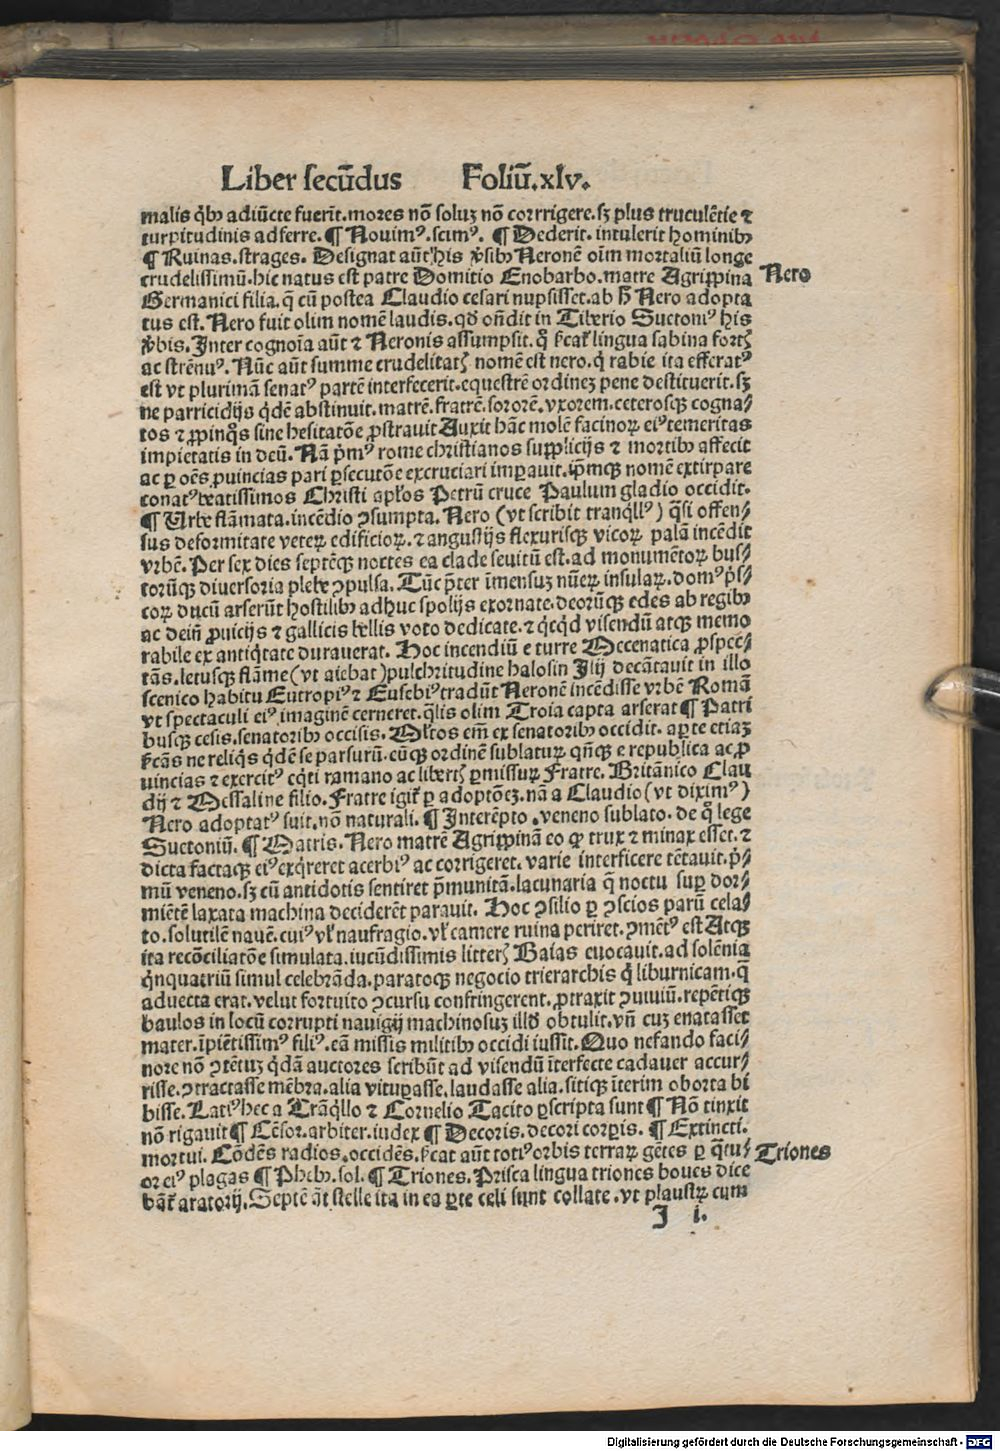 Liber secūdus Foliū.xlv.
malis q̇bꝫ adiūcte fuerīt.mores nō soluꝫ nō corrrigere.sꝫ plus truculētie ⁊
turpitudinis adferre.¶ Nouimꝰ.scimꝰ. ¶ Dederit. intulerit hominibꝫ
¶ Ruinas.strages. Designat aūt his v̓sibꝫ Neronē oīm mortaliū longe
crudelissimū.hic natus est patre Domitio Enobarbo.matre Agrippina
Nero
Germanici filia.q̄ cū postea Claudio cesari nupsisset.ab h̄ Nero adopta
tus est.Nero fuit olim nomē laudis.qđ oñdit in Tiberio Suctoniꝰ his
v̓bis.Inter cognoīa aūt ⁊ Neronis assumpsit.qͦ ſcatᷣ lingua sabina fortꝭ
ac strēnuꝰ. Nūc aūt summe crudelitatꝭ nomē est nero.q̇ rabie ita efferatꝰ
est vt plurimā senatꝰ partē interfecerit.equestrē ordineꝫ pene destituerit.sꝫ
ne parricidijs q̇dē abstinuit.matrē.fratrē.sororē.vxorem.ceterosqꝫ cogna⸗
tos ⁊ ꝓpinqͦs sine hesitatōe ꝓstrauit Auxit hāc molē facinoꝝ eiꝰ temeritas
impietatis in deū.Nā p̓mꝰ rome christianos supplicijs ⁊ mortibꝫ affecit
ac ꝑ oēs ꝓuincias pari ꝑsecutōe excruciari imꝑauit.ip̄mqꝫ nomē extirpare
conatꝰ beatissimos Christi apl̓os Petrū cruce Paulum gladio occidit.
¶ Vrbe flāmata.incēdio ꝯsumpta. Nero (vt scribit tranqͥllꝰ) q̄si offen⸗
sus deformitate veteꝝ edificioꝝ.⁊ angustijs flexurisqꝫ vicoꝝ palā incēdit
vrbē.Per sex dies septēqꝫ noctes ea clade seuitū est.ad monumētoꝝ bus⸗
torūqꝫ diuersoria plebe ꝯpulsa.Tūc p̄ter īmensuꝫ nūeꝝ insulaꝝ.domꝰ p̓s⸗
coꝝ ducū arserūt hostilibꝫ adhuc spolijs exornate.deorūqꝫ edes ab regibꝫ
ac deiñ ꝓuicijs ⁊ gallicis bellis voto dedicate.⁊ q̇cq̇d visendū atqꝫ memo
rabile ex antiq̇tate durauerat. Hoc incendiū e turre Mecenatica ꝓspec⸗
tās.letusqꝫ flāme(vt aiebat)pulchritudine halosin Ilij decātauit in illo
scenico habitu Eutropiꝰ ⁊ Eusebiꝰ tradūt Neronē incēdisse vrbē Romā
vt spectaculi eiꝰ imaginē cerneret.q̄lis olim Troia capta arserat ¶ Patri
busqꝫ cesis.senatoribꝫ occisis. Ml̓tos em̄ ex senatoribꝫ occidit. aꝑte etiaꝫ
ſcās ne reliq̇s q̇dē se parsurū.eūqꝫ ordinē sublatuꝝ qn̄qꝫ e republica ac ꝓ
uincias ⁊ exercitꝰ eq̇ti ramano ac libertꝭ ꝑmissuꝝ Fratre. Britānico Clau
dij ⁊ Messaline filio.Fratre igit̄ ꝑ adoptōeꝫ.nā a Claudio(vt diximꝰ)
Nero adoptatꝰ fuit.nō naturali. ¶ Interēpto.veneno sublato. de qͦ lege
Suctoniū. ¶ Matris.Nero matrē Agrippinā eo ꝙ trux ⁊ minax esset.⁊
dicta factaqꝫ eiꝰ exq̇reret acerbiꝰ ac corrigeret.varie interficere tētauit.p̓⸗
mū veneno.sꝫ cū antidotis sentiret p̄munitā.lacunaria q̄ noctu suꝑ dor⸗
miētē laxata machina deciderēt parauit. Hoc ꝯsilio ꝑ ꝯscios parū cela⸗
to.solutilē nauē.cuiꝰ vl̓ naufragio.vl̓ camere ruina periret.ꝯmētꝰ est Atqꝫ
ita recōciliatōe simulata.iucūdissimis litterꝭ Baias euocauit.ad solēnia
q̇nquatriū simul celebrāda.paratoqꝫ negocio trierarchis q̇ liburnicam.q̄
aduecta erat.velut fortuito ꝯcursu confringerent.ꝓtraxit ꝯuiuiū.repētiqꝫ
baulos in locū corrupti nauigij machinosuꝫ illđ obtulit.vn̄ cuꝫ enatasset
mater.īpiētissimꝰ filiꝰ.eā missis militibꝫ occidi iussit.Quo nefando faci⸗
nore nō ꝯtētuꝫ q̇dā auctores scribūt ad visendū īterfecte cadauer accur⸗
risse.ꝯtractasse mēbra.alia vituꝑasse.laudasse alia.sitiqꝫ īterim oborta bi
bisse.Latiꝰ hec a Trāq̇llo ⁊ Cornelio Tacito ꝑscripta sunt ¶ Nō tinxit
nō rigauit ¶ Cēsor.arbiter.iudex ¶ Decoris.decori corꝑis. ¶ Extincti.
mortui. Cōdēs radios.occidēs.ſcat aūt totiꝰ orbis terraꝝ gētes ꝑ q̄tuꝫ⸗
Triones
or eiꝰ plagas ¶ Phebꝫ.sol. ¶ Triones.Prisca lingua triones boues dice
bāt̄ aratorij.Septē āt stelle ita in ea ꝑte celi sunt collate.vt plaustꝝ cum
I i.
Digitalisierung gefördert durch die Deutsche Forschungsgemeinschaft - DFG